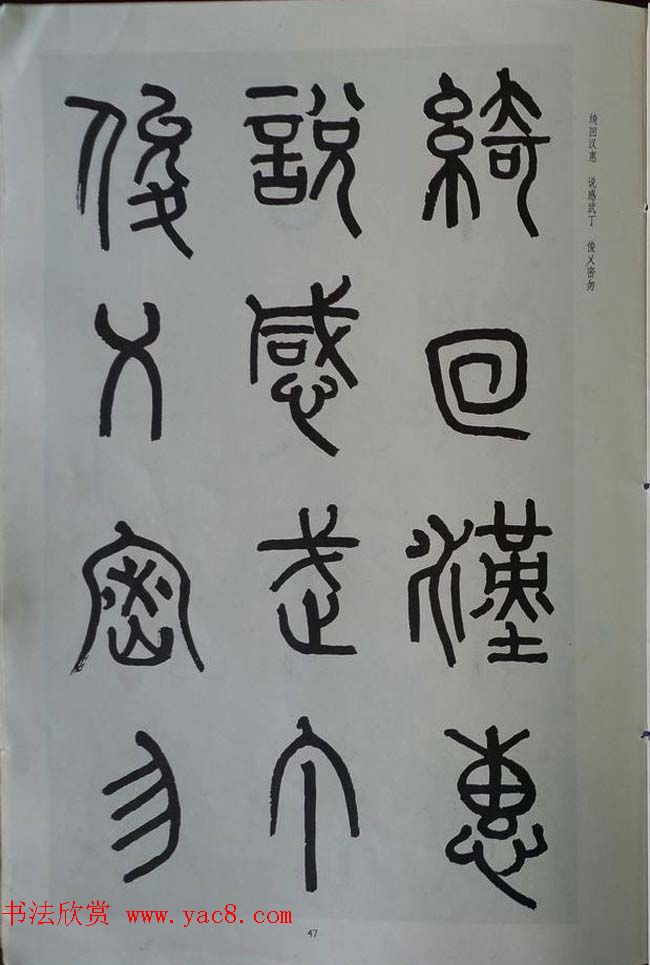 綺回漢惠
說感武丁
俊乂密勿
绮回汉惠 说感武丁 俊乂密勿
47
书法欣赏 www.yac8.com